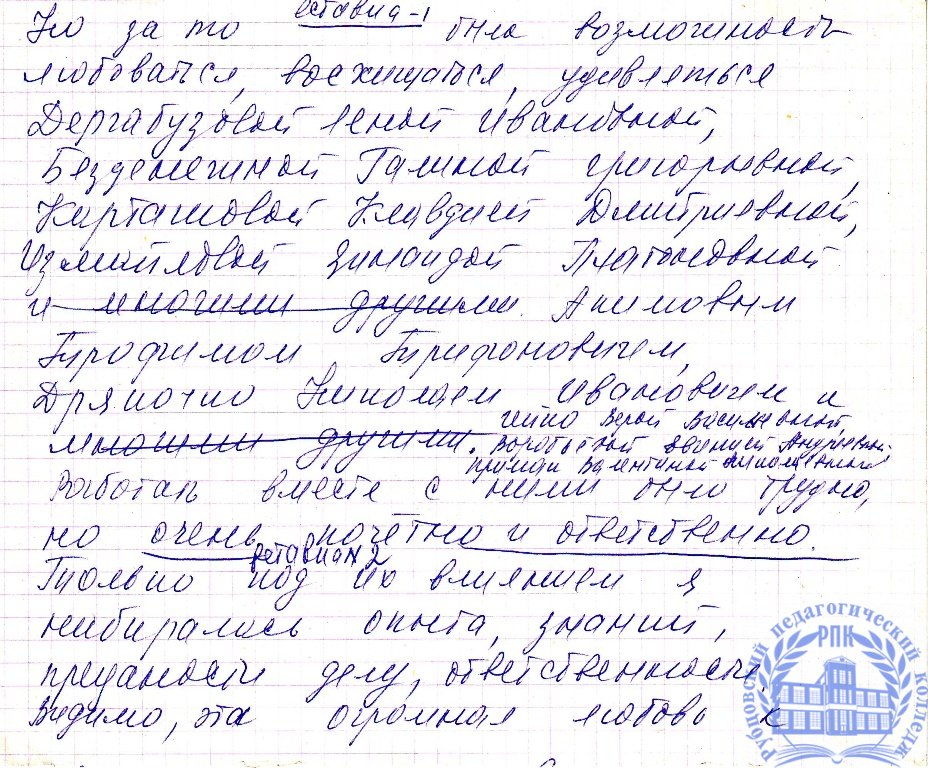 вставка-1
Но за то была возможность
любоваться, восхищаться, удивляться
Дергабузовой Еленой Ивановной,
Безденежиной Галиной Григорьевной,
Карташовой Клавдией Дмитриевной,
Измайловой Зинаидой Платоновной
и многими другими. Акимовым
Трофимом Трифоновичем,
Дряпочко Николаем Ивановичем и
Верой Васильевной,
многими другими. Воробьевой Евгенией Андреевной
Валентиной Николаевной
Работать вместе с ними было трудно,
но очень почётно и ответственно.
вставка 2
Только под их влиянием я
набиралась опыта, знаний,
преданости делу, ответственности.
Видимо, эта огромная любовь к
Рубцовский педагогический колледж
РПК